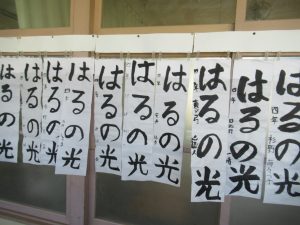 はるの光
はるの光
はるの光
はるの光
はるの光
はるの光
はるの光
はるの光
四年
はるの光
四年